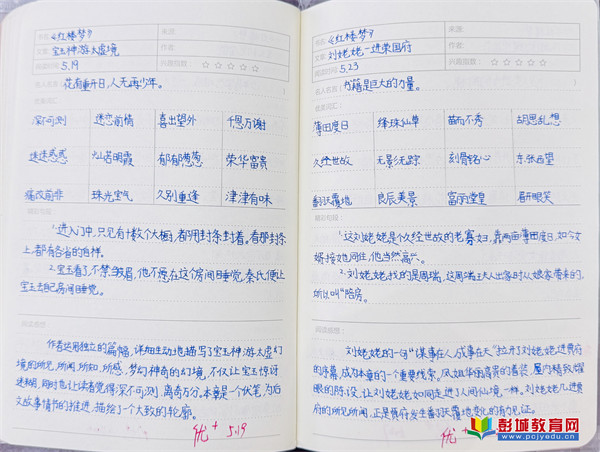 书名:《红楼梦》
来源:
文章:宝玉神游太虚境
作者:
阅读时间:5.19
兴趣指数:☆☆☆☆☆
名人名言:花有重开日,人无再少年。
好词词汇:
深不可测 迷恋前情 喜出望外 千恩万谢
迷迷惑惑 灿若明霞 郁郁葱葱 荣华富贵
痛改前非 珠光宝气 久别重逢 津津有味
精彩句段:
1.进入门中,只见有十数个大橱,都用封条封着。看那封条
上,都有各省的字样。
2.宝玉看了,不禁皱眉,他不愿在这个房间睡觉,秦氏便让
宝玉去配房间睡觉。
阅读感想:
作者运用独立的篇幅,详细生动地描写了宝玉神游太虚幻
境的所见,所闻,所知,所感,梦幻神奇的幻境,不仅让宝玉惊讶
迷糊,同时也让读者觉得深不可测,离奇万分。本章是个伏笔,为后
文故事情节的推进,描绘了一个大致的轮廓。
优+ 5.19
书名:《红楼梦》
来源:
文章:刘姥姥一进荣国府
作者:
阅读时间:5.23
兴趣指数:☆☆☆☆☆
名人名言:书籍是巨大的力量。
好词词汇:
薄田度日 绛珠仙草 苗而不秀 胡思乱想
久经世故 无影无踪 刻骨铭心 东张西望
翻天覆地 良辰美景 富丽堂皇 眉开眼笑
精彩句段:
1.这刘姥姥是个久经世故的老寡妇,靠两亩薄田度日,如今女
婿接她同住,他当然高兴。
2.刘姥姥找的是周瑞,这周瑞王夫人出家时从娘家带来的,
所以叫“陪房。
阅读感想:
刘姥姥的一句“谋事在人,成事在天”拉开了刘姥姥进贾府
的序幕,成为本章的一个重要线索。凤姐华丽高贵的着装,屋内精致耀
眼的陈设,让刘姥姥如同走进了人间仙境一样。刘姥姥几进贾
府的所见所闻,正是贾府发生翻天覆地变化的有力见证。
优+
彭城教育网
www.pcjyedu.cn